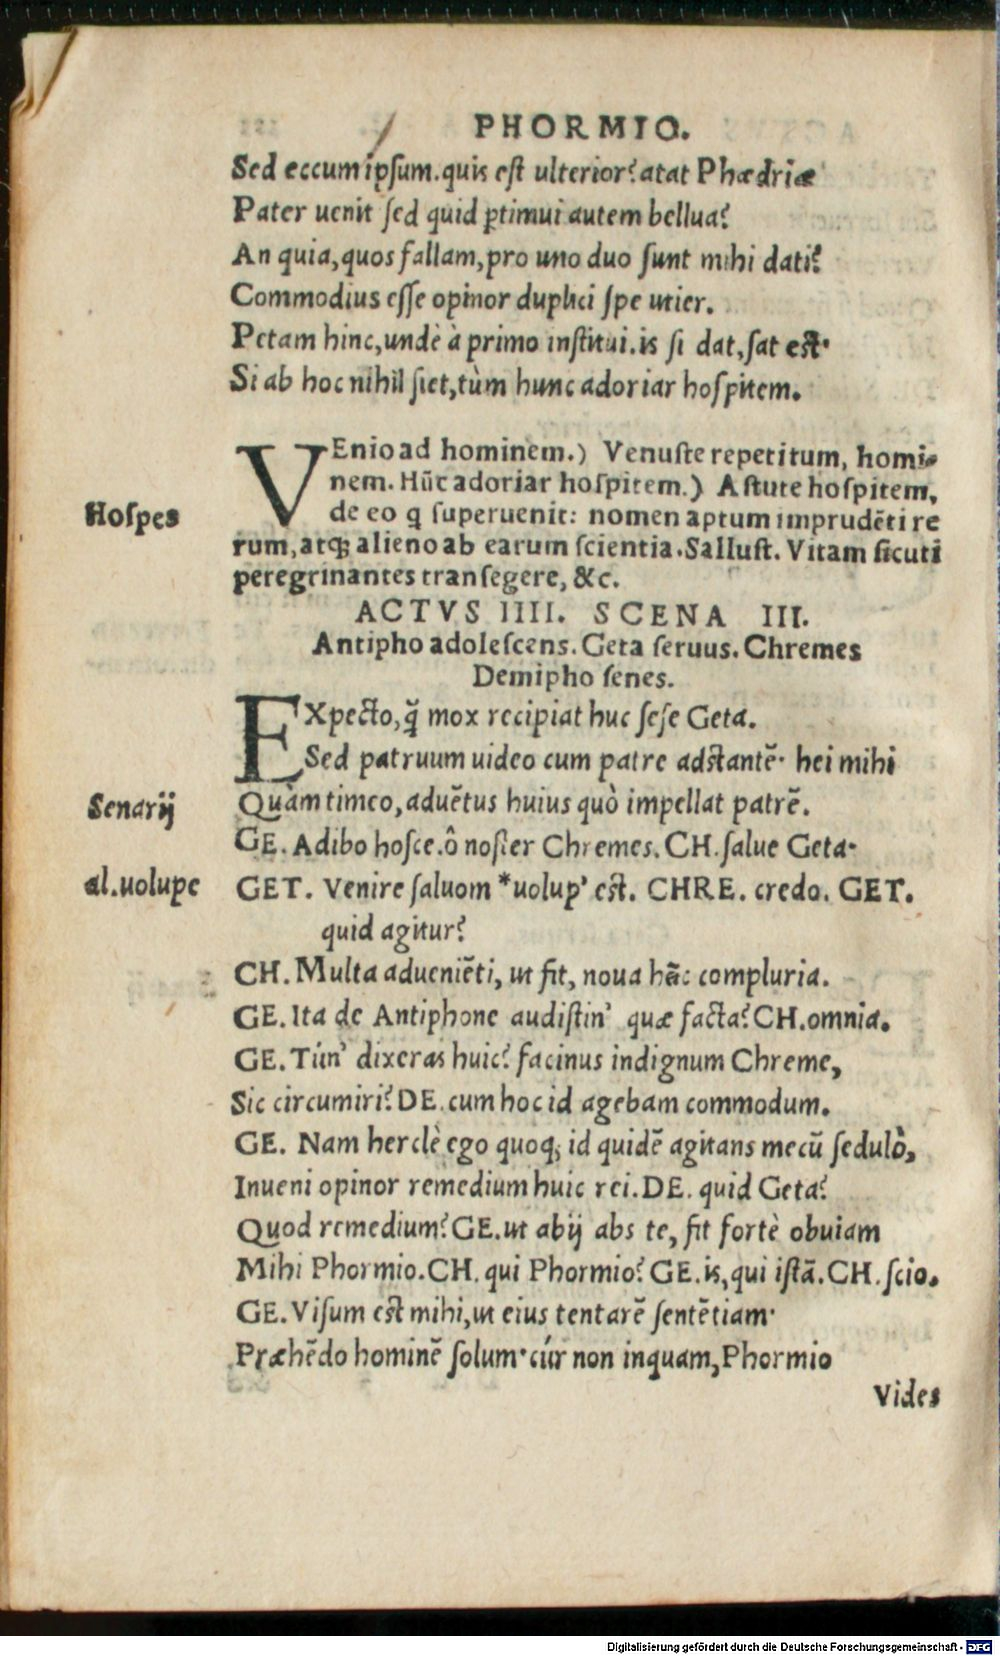 PHORMIO.
Sed eccum ipsum. quis est ulterior? atat Phædriæ
Pater uenit sed quid ptimui autem bellua?
An quia, quos fallam, pro uno duo sunt mihi dati?
Commodius esse opinor duplici spe utier.
Petam hinc, undè à primo institui. is si dat, sat est.
Si ab hoc nihil fiet, tùm hunc adoriar hospitem.
VEnio ad hominem.) Venuste repetitum, homi-
nem. Hũc adoriar hospitem.) Astute hospitem,
Hospes
de eo q superuenit: nomen aptum imprudẽti re
rum, atq; alieno ab earum scientia. Sallust. Vitam sicuti
peregrinantes transegere, &c.
ACTVS IIII. SCENA III.
Antipho adolescens. Geta seruus. Chremes
Demipho senes.
EXpecto, q̃ mox recipiat huc sese Geta.
Sed patruum uideo cum patre adstantẽ. hei mihi
Senarij
Quàm timeo, aduẽtus huius quò impellat patrẽ.
GE. Adibo hosce. ô noster Chremes. CH. salue Geta.
al. uolupe
GET. Venire saluom *uolup' est. CHRE. credo. GET.
quid agitur?
CH. Multa adueniẽti, ut fit, noua hæc compluria.
GE. Ita de Antiphone audistin' quæ facta? CH. omnia.
GE. Tún' dixeras huic? facinus indignum Chreme,
Sic circumiri? DE. cum hoc id agebam commodum.
GE. Nam herclè ego quoq; id quidẽ agitans mecũ sedulò,
Inueni opinor remedium huic rei. DE. quid Geta?
Quod remedium? GE. ut abij abs te, fit fortè obuiam
Mihi Phormio. CH. qui Phormio? GE. is, qui istã. CH. scio.
GE. Visum est mihi, ut eius tentarẽ sentẽtiam.
Præhẽdo hominẽ solum. cúr non inquam, Phormio
Vides
Digitalisierung gefördert durch die Deutsche Forschungsgemeinschaft - DFG